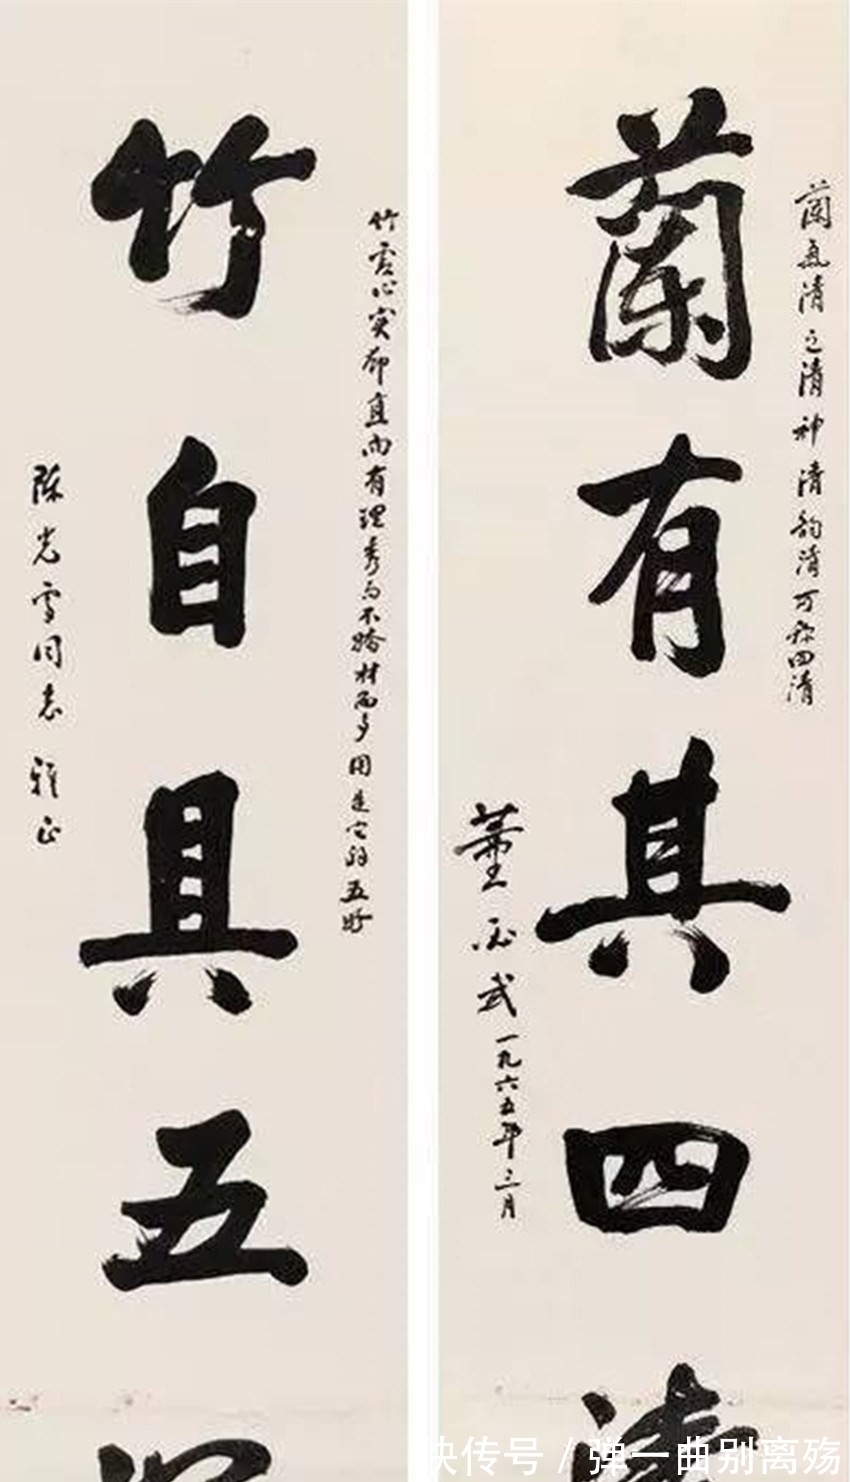 蘭氣清色清神清韵清可称四清
蘭有其四清
董必武一九六五年三月
竹虚心实节直而有理秀而不骄材而多用是它的五好
竹自具五
陈光雪同志雅正
快传号 / 弹一曲别离殇